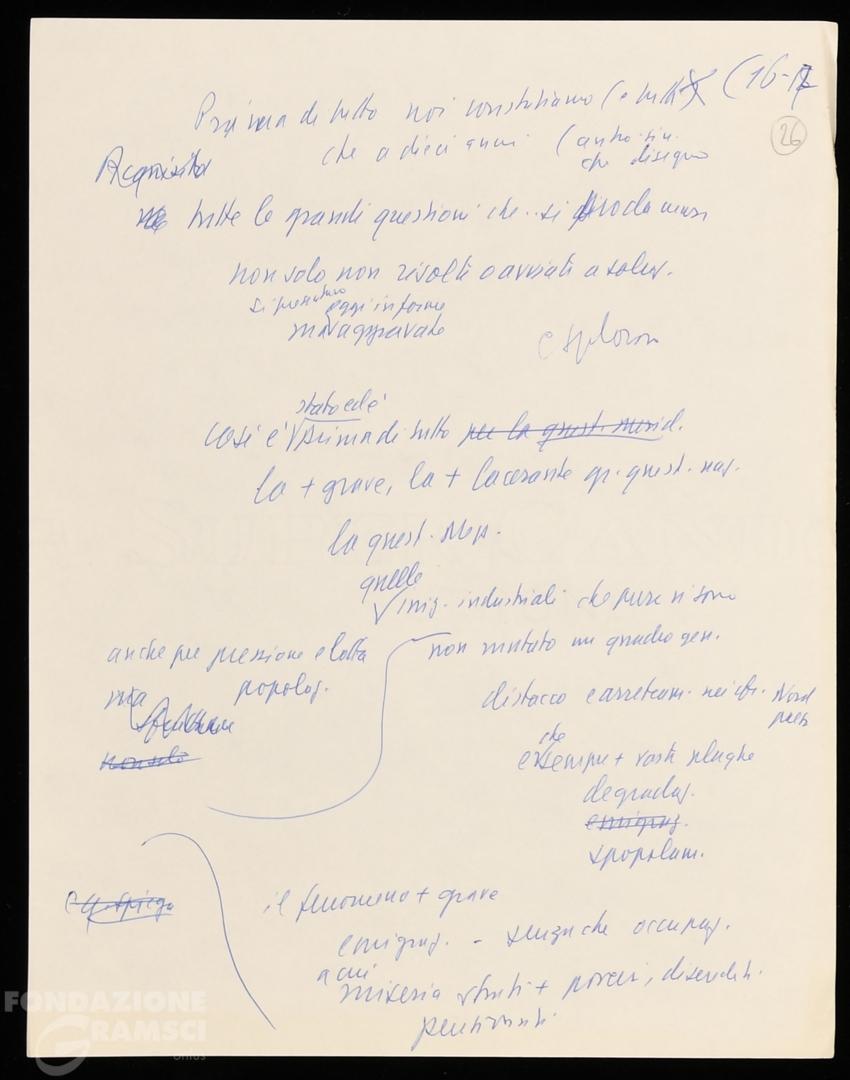 (16-17
26
Prima di tutto noi constatiamo (e tutti
che a dieci anni (centro-sin.
che disegno
Acquisito
tutte le grandi questioni che si
non solo non risolti o avviati a soluz.
si presentano oggi in forme
aggravate
esplosion
stato ed è
così è prima di tutto per la quest. merid.
la + grave, la + lacerante gr. quest. naz.
la quest. Mer.
quelle
iniz. industriali che pure vi sono
anche per pressione e lotta
popolaz.
ma
non solo
non mutato un quadro gen.
distacco e arretram. nei cfr. Nord
paese
che
e sempre + vaste plaghe
degradaz.
emigraz.
spopolam.
e q. spiega
il fenomeno + grave
emigraz. - senza che occupaz.
a cui
miseria strati + poveri, diseredati.
pensionati
FONDAZIONE
GRAMSCI
onlus